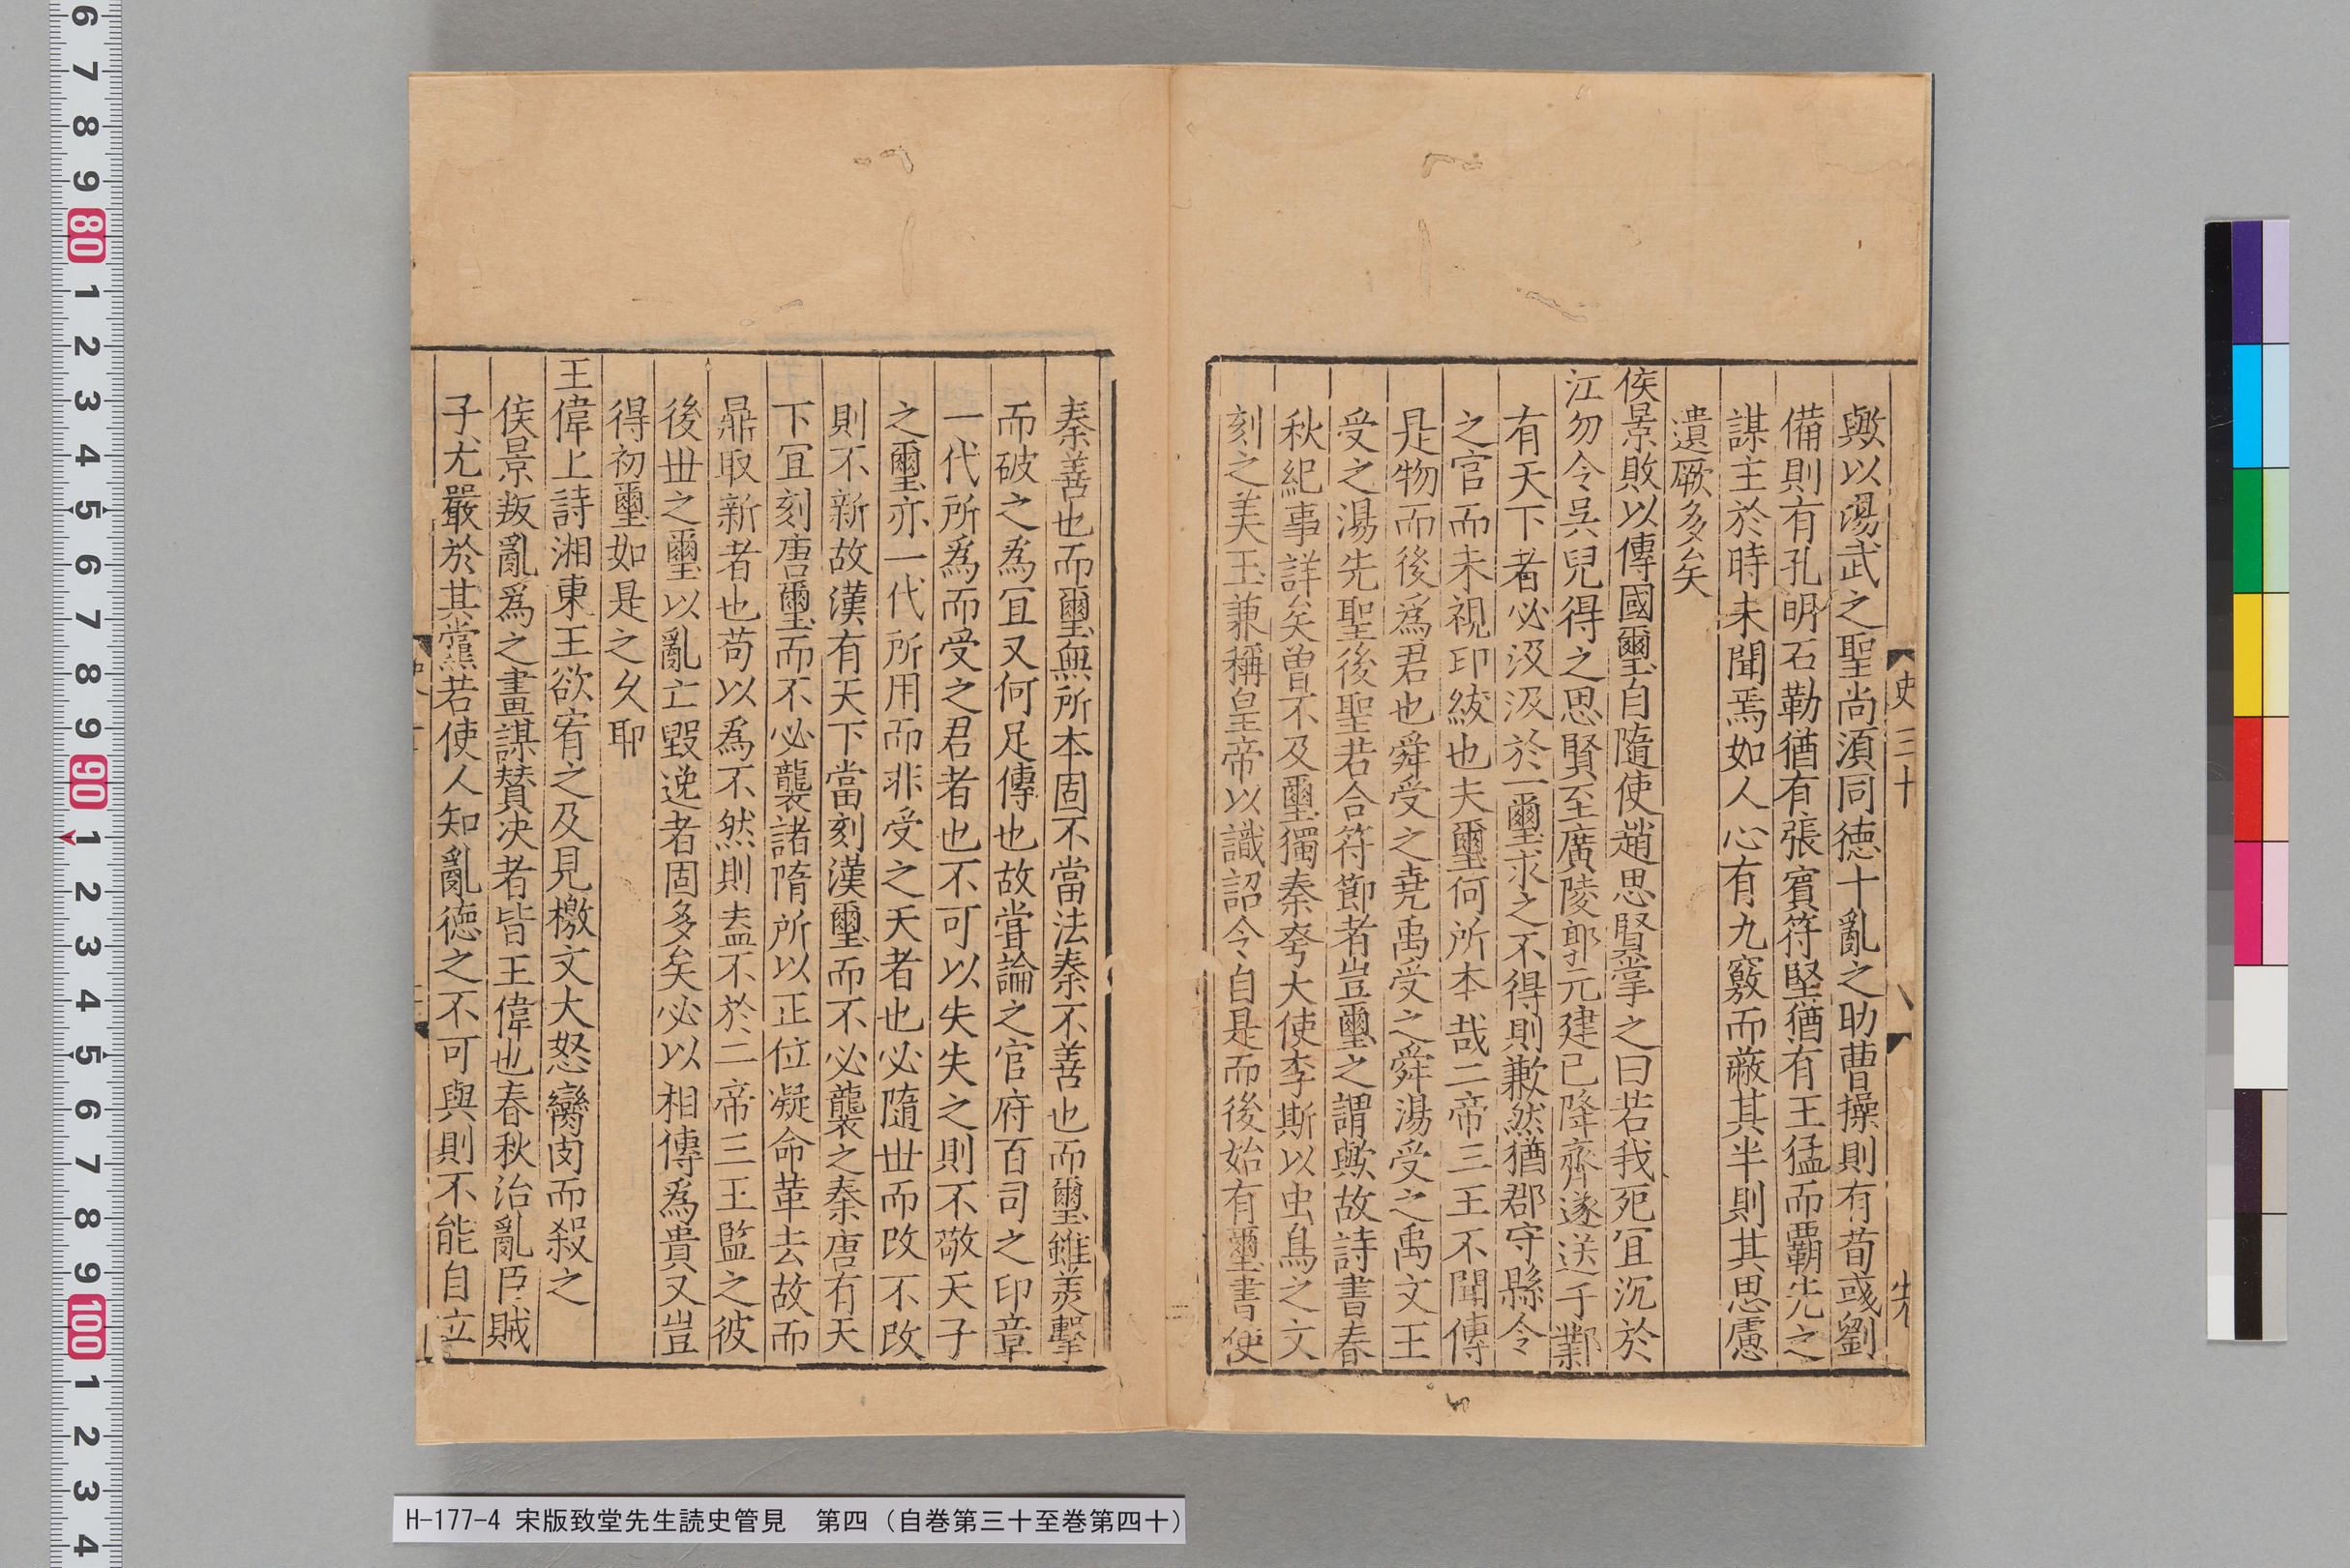 歟以湯武之聖尚湏同徳十亂之助曹操則有荀彧劉
備則有孔明石勒猶有張賓符堅猶有王猛而覇先之
謀主於時未聞焉如人心有九竅而蔽其半則其思慮
遺厥多矣
侯景敗以傳國璽自隨使趙思賢掌之曰若我死冝沉於
江勿令吳兒得之思賢至廣陵郭元建已降齊遂送于鄴
有天下者必汲汲於一璽求之不得則歉然猶郡守縣令
之官而未視印紱也夫璽何所本哉二帝三王不聞傳
是物而後爲君也舜受之堯禹受之舜湯受之禹文王
受之湯先聖後聖若合符節者豈璽之謂歟故詩書春
秋紀事詳矣曽不及璽獨秦夸大使李斯以虫鳥之文
刻之美玉兼稱皇帝以識詔令自是而後始有璽書使
史三十
八
秦善也而璽無所本固不當法秦不善也而璽雖美擊
而破之爲冝又何足傳也故甞論之官府百司之印章
一代所爲而受之君者也不可以失失之則不敬天子
之璽亦一代所用而非受之天者也必隨世而改不改
則不新故漢有天下當刻漢璽而不必襲之秦唐有天
下冝刻唐璽而不必襲諸隋所以正位凝命革去故而
鼎取新者也苟以爲不然則盍不於二帝三王監之彼
後世之璽以亂亡毀逸者固多矣必以相傳爲貴又豈
得初璽如是之久耶
王偉上詩湘東王王欲宥之及見檄文大怒臠肉而殺之
侯景叛亂爲之畫謀賛决者皆王偉也春秋治亂臣賊
子尤嚴於其黨若使人知亂徳之不可與則不能自立
H-177-4 宋版致堂先生読史管見 第四（自巻第三十至巻第四十）
6 7 8 9 80 1 2 3 4 5 6 7 8 9 90 1 2 3 4 5 6 7 8 9 100 1 2 3 4